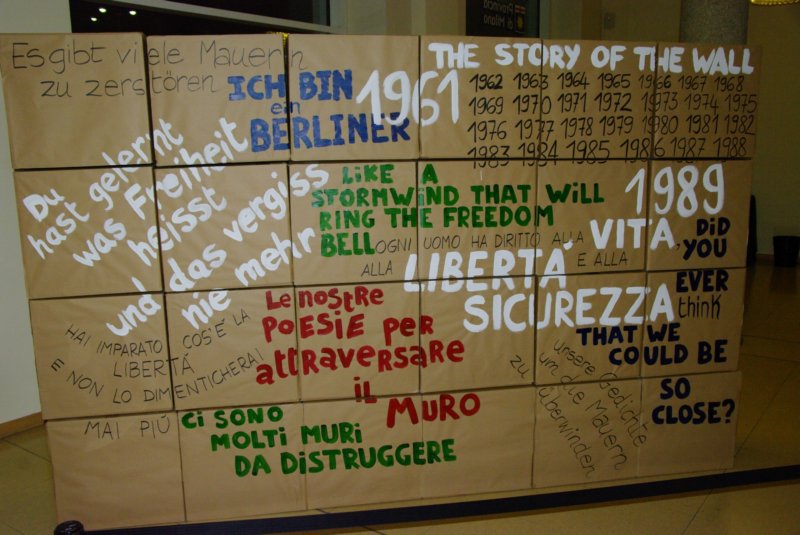 Provincia
di Milano
Es gibt viele Mauern
zu zerstören
ICH BIN
ein
BERLINER
1961
THE STORY OF THE WALL
1962 1963 1964 1965 1966 1967 1968
1969 1970 1971 1972 1973 1974 1975
1976 1977 1978 1979 1980 1981 1982
1983 1984 1985 1986 1987 1988
1989
Du
hast gelernt
was Freiheit
heisst
und das vergiss
nie mehr
LIKE A
STORMWIND THAT WILL
RING THE FREEDOM
BELL
OGNI UOMO HA DIRITTO ALLA VITA,
ALLA LIBERTÁ E ALLA
SICUREZZA
DID
YOU
EVER
think
THAT WE
COULD BE
SO
CLOSE?
HAI IMPARATO COS'É LA
LIBERTÁ
E NON LO DIMENTICHERAI
MAI PIÚ
Le nostre
POESIE PER
attraversare
il
MURO
Ci SONO
MOLTI MURI
DA DISTRUGGERE
unsere Gedichte
um die Mauern
zu
überwinden